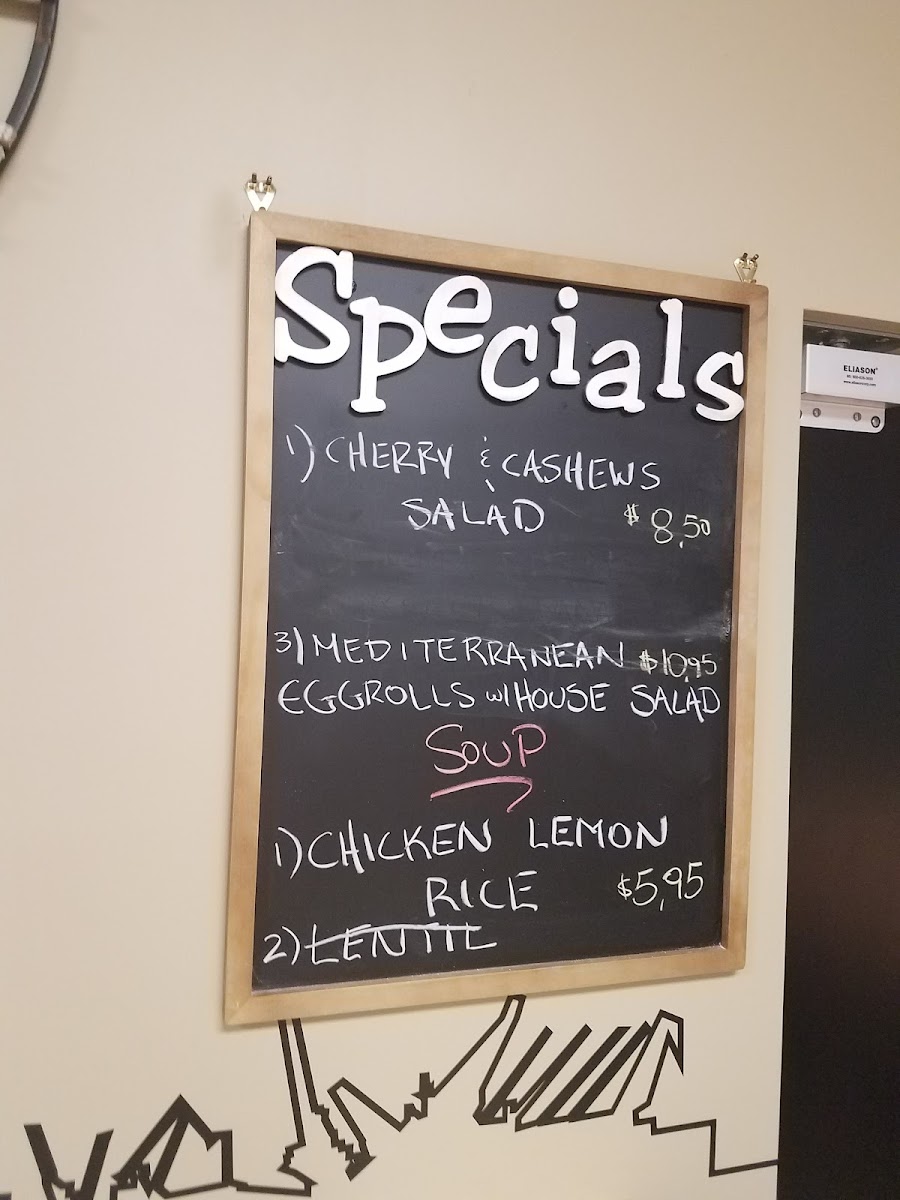 Specials
1) CHERRY & CASHEWS
SALAD $8,50
3) MEDITERRANEAN $10,95
EGGROLLS w/HOUSE SALAD
SOUP
1) CHICKEN LEMON
RICE $5,95
2) LENTIL
ELIASON®
www.eliasoncorp.com